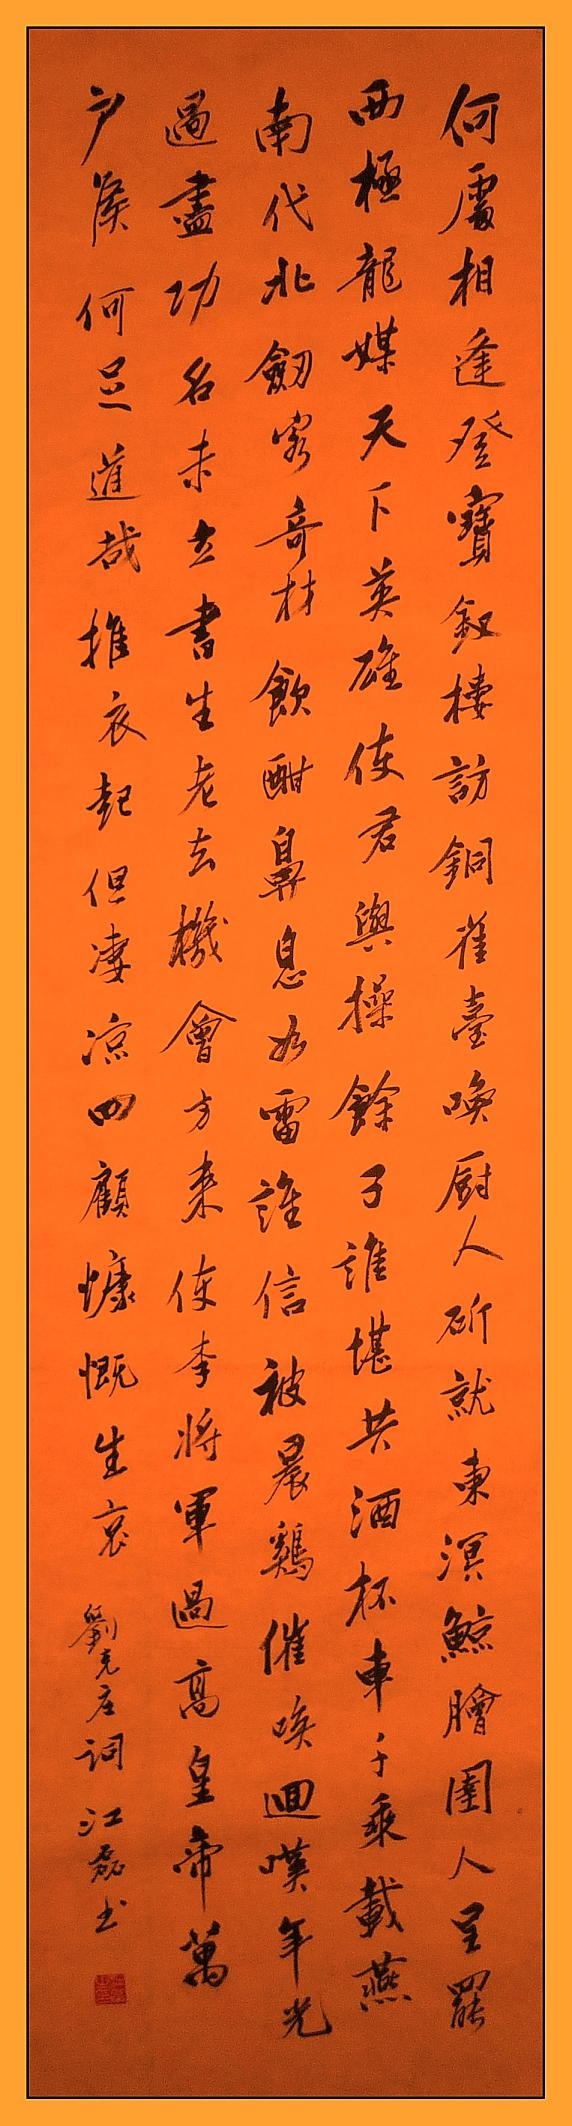 何處相逢登寶釵樓訪銅雀臺喚厨人斫就東溟鯨膾圉人呈罷
西極龍媒天下英雄使君與操餘子誰堪共酒杯車千乘載燕
南代北劒客奇材飲酣鼻息如雷誰信被晨鷄催喚迴嘆年光
過盡功名未立書生老去機會方來使李將軍遇高皇帝萬
户侯何足道哉推衣起但凄凉四顧慷慨生哀
劉克庄詞江磊书